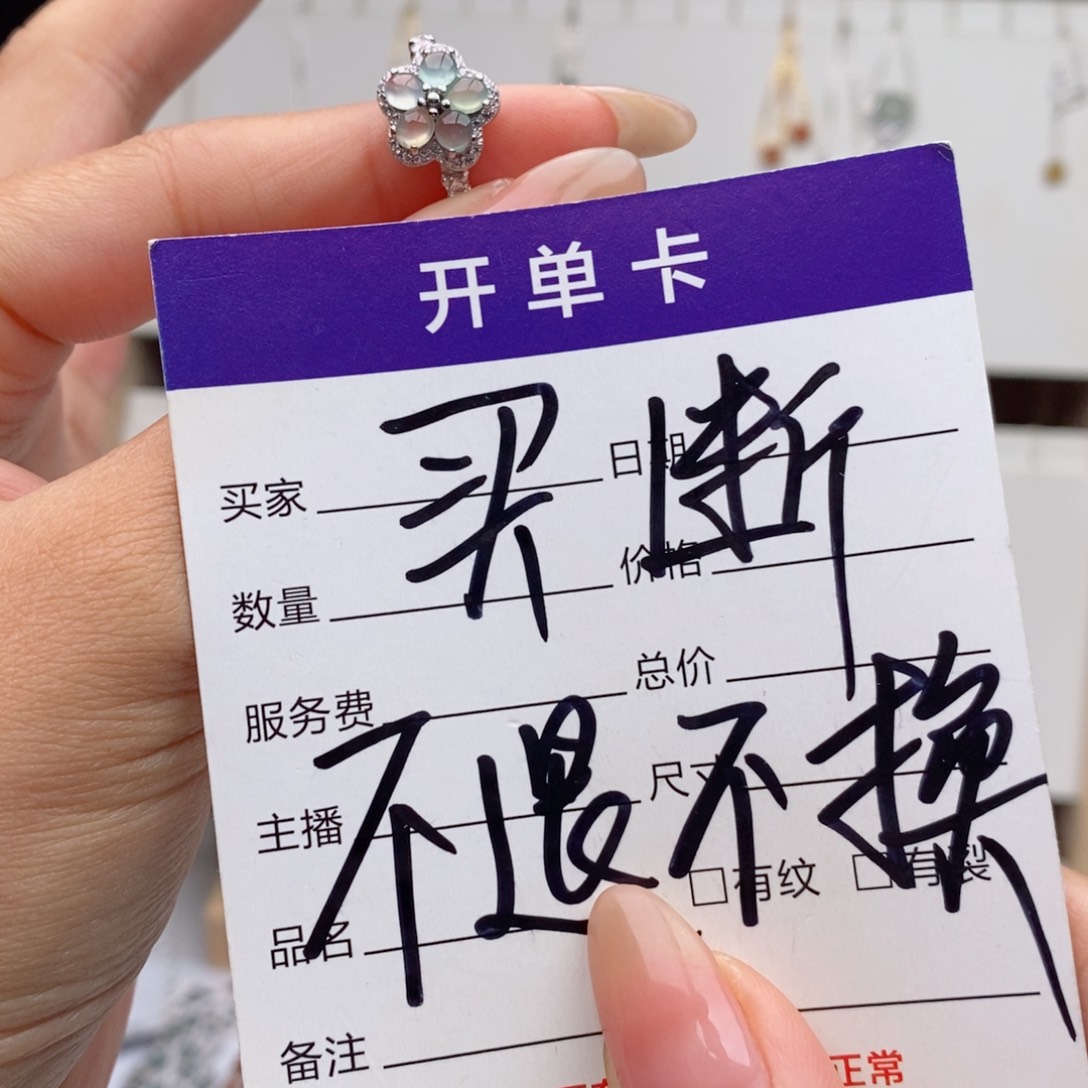 开单卡
买断
买家 日期
数量 价格
服务费 总价
不退不换
主播 尺寸
□有纹 □有裂
品名
备注
正常